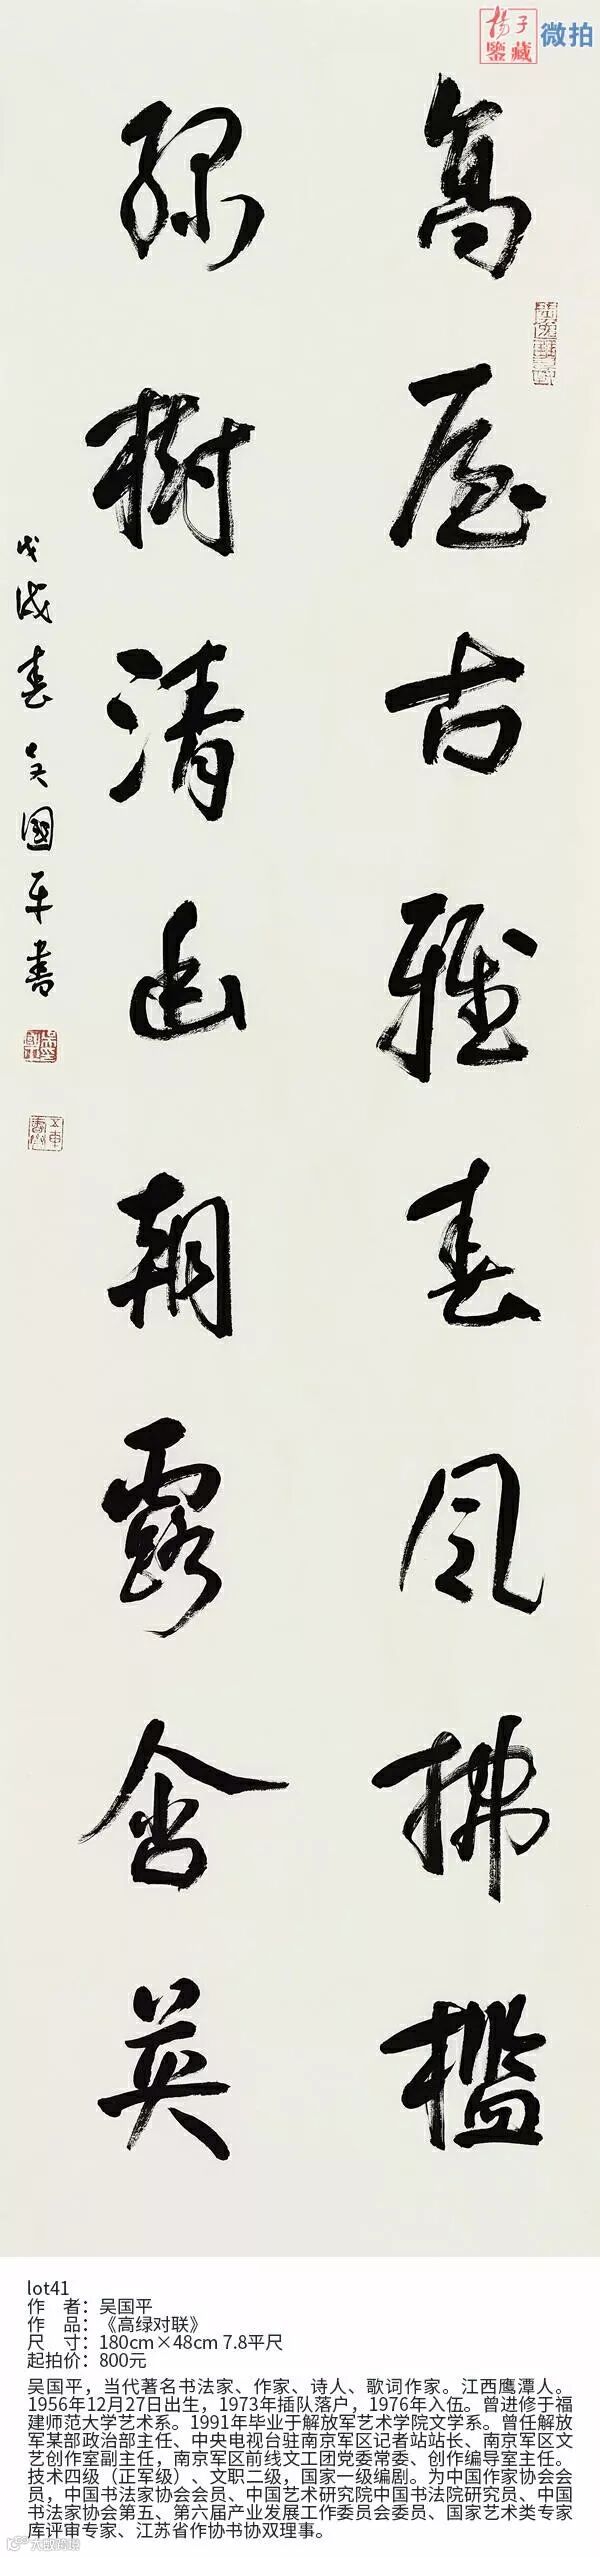 揚子
鑒藏
微拍
高屋古雅春风拂槛
绿樹清幽朝露含英
戊戌春吴國平書
lot41
作 者：吴国平
作 品：《高绿对联》
尺 寸：180cm×48cm 7.8平尺
起拍价：800元
吴国平，当代著名书法家、作家、诗人、歌词作家。江西鹰潭人。
1956年12月27日出生，1973年插队落户，1976年入伍。曾进修于福
建师范大学艺术系。1991年毕业于解放军艺术学院文学系。曾任解放
军某部政治部主任、中央电视台驻南京军区记者站站长、南京军区文
艺创作室副主任，南京军区前线文工团党委常委、创作编导室主任。
技术四级（正军级）、文职二级，国家一级编剧。为中国作家协会会
员，中国书法家协会会员、中国艺术研究院中国书法院研究员、中国
书法家协会第五、第六届产业发展工作委员会委员、国家艺术类专家
库评审专家、江苏省作协书协双理事。